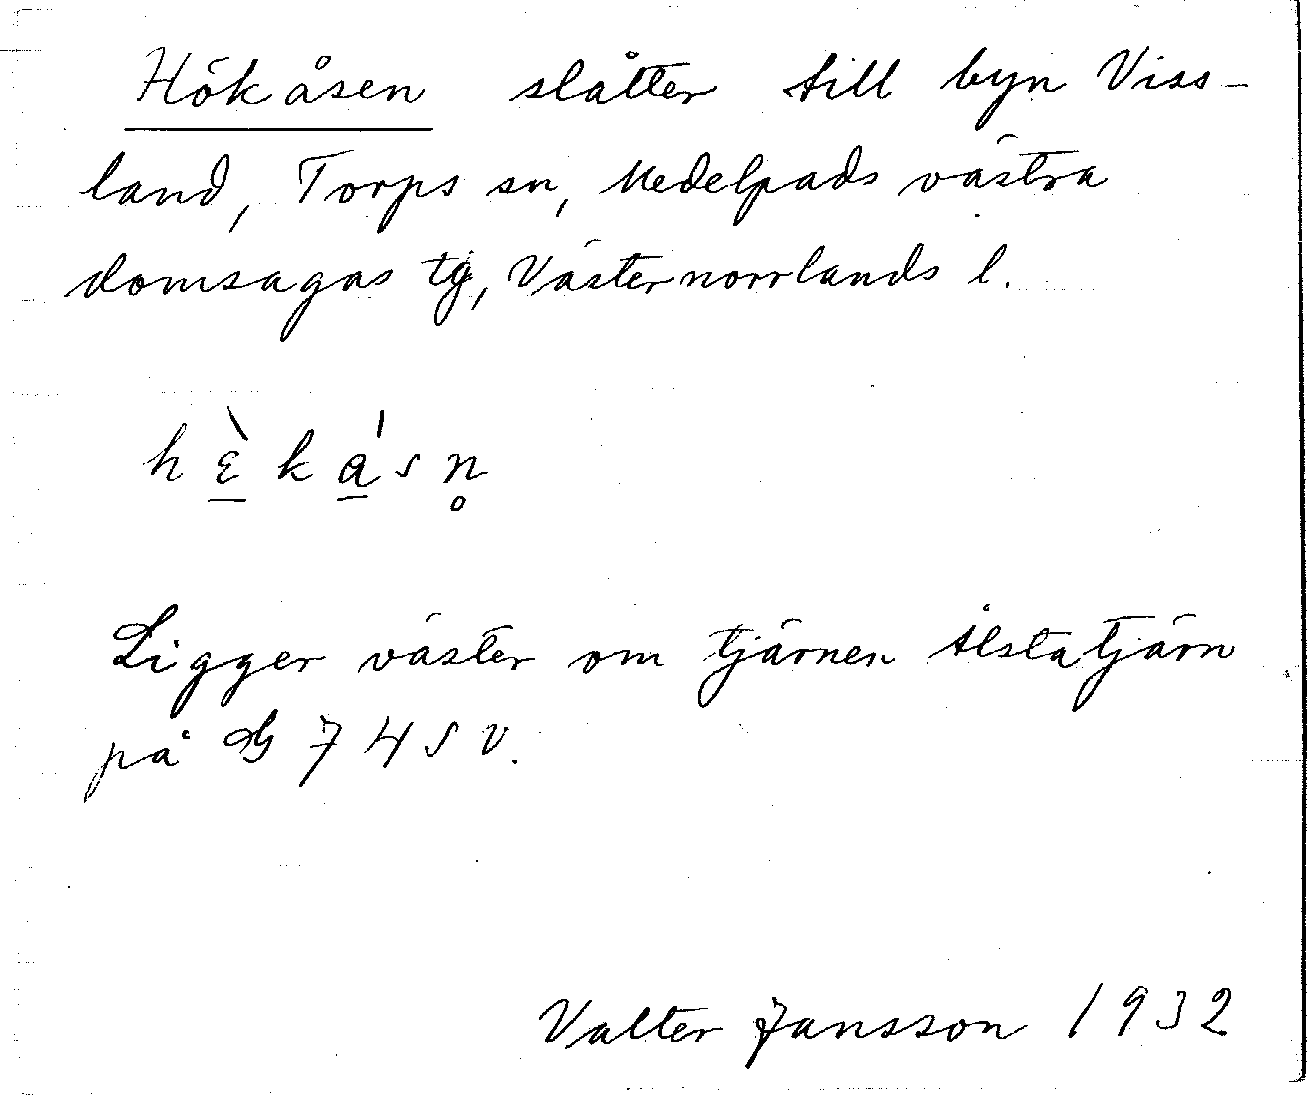 Hökåsen slåtter till byn Viss-
land, Torps sn, Medelpads västra
domsagas tg, Västernorrlands l.
hɛ̲̀ká̲sn̥
Ligger väster om tjärnen Ålstatjärn
på G 74 SV.
Valter Jansson 1932